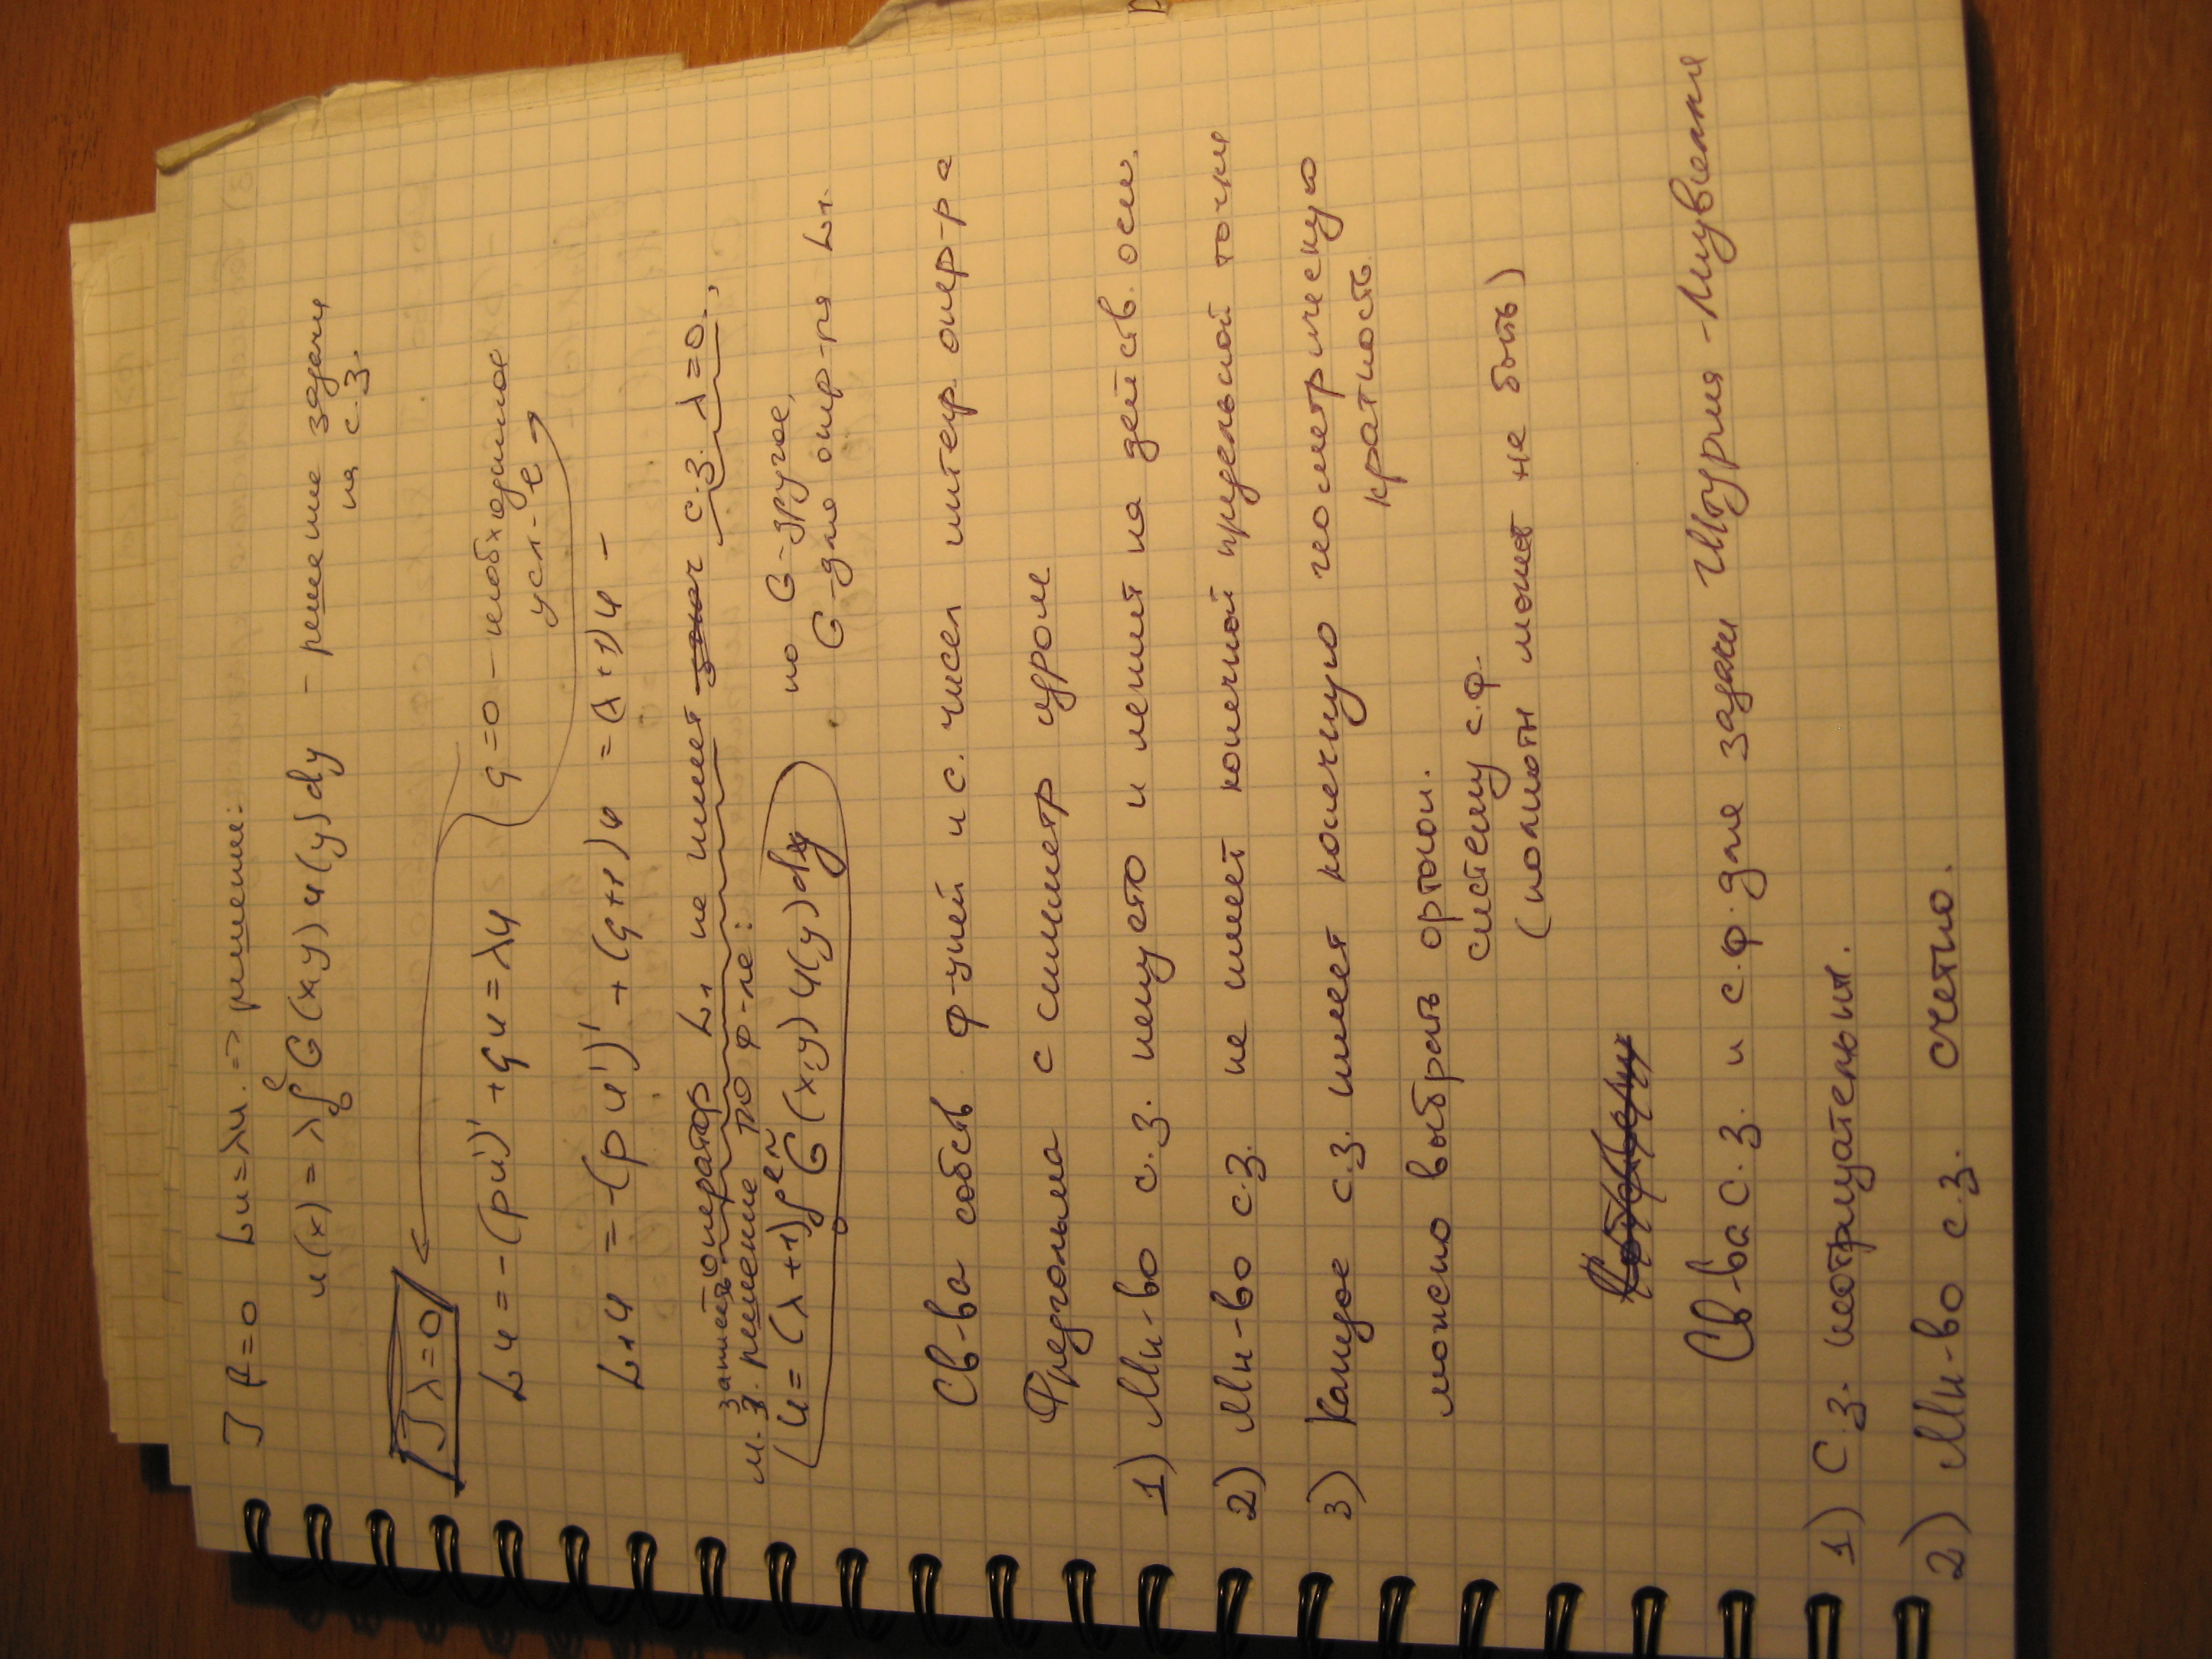 ] f=0 Lu=λu. => решение:
u(x) = λ∫₀ˡ G(x,y) u(y) dy – решение задачи
на с.з.
] λ=0
Lu = -(pu')' + qu = λu } q=0 – необходимое
усл-е
L₁u = -(pu')' + (q+1)u = (λ+1)u –
оператор L₁ не имеет с.з. λ=0.,
м. записать решение по ф-ле: но G – другое,
u = (λ+1)∫₀ˡ G̃(x,y) u(y) dy . G̃ – для опер-ра L₁.
Св-ва собств ф-ций и с. чисел интегр. опер-ра
Фредгольма с симметр ядром
1) Мн-во с.з. непусто и лежит на действ. оси.
2) Мн-во с.з. не имеет конечной предельной точки
3) Каждое с.з. имеет конечную геометрическую
кратность
можно выбрать ортон.
систему с.ф.
(полноты может не быть)
Св-ва с.з. и с.ф. для задачи Штурма-Лиувилля
1) С.з. неотрицательны.
2) Мн-во с.з. счетно.